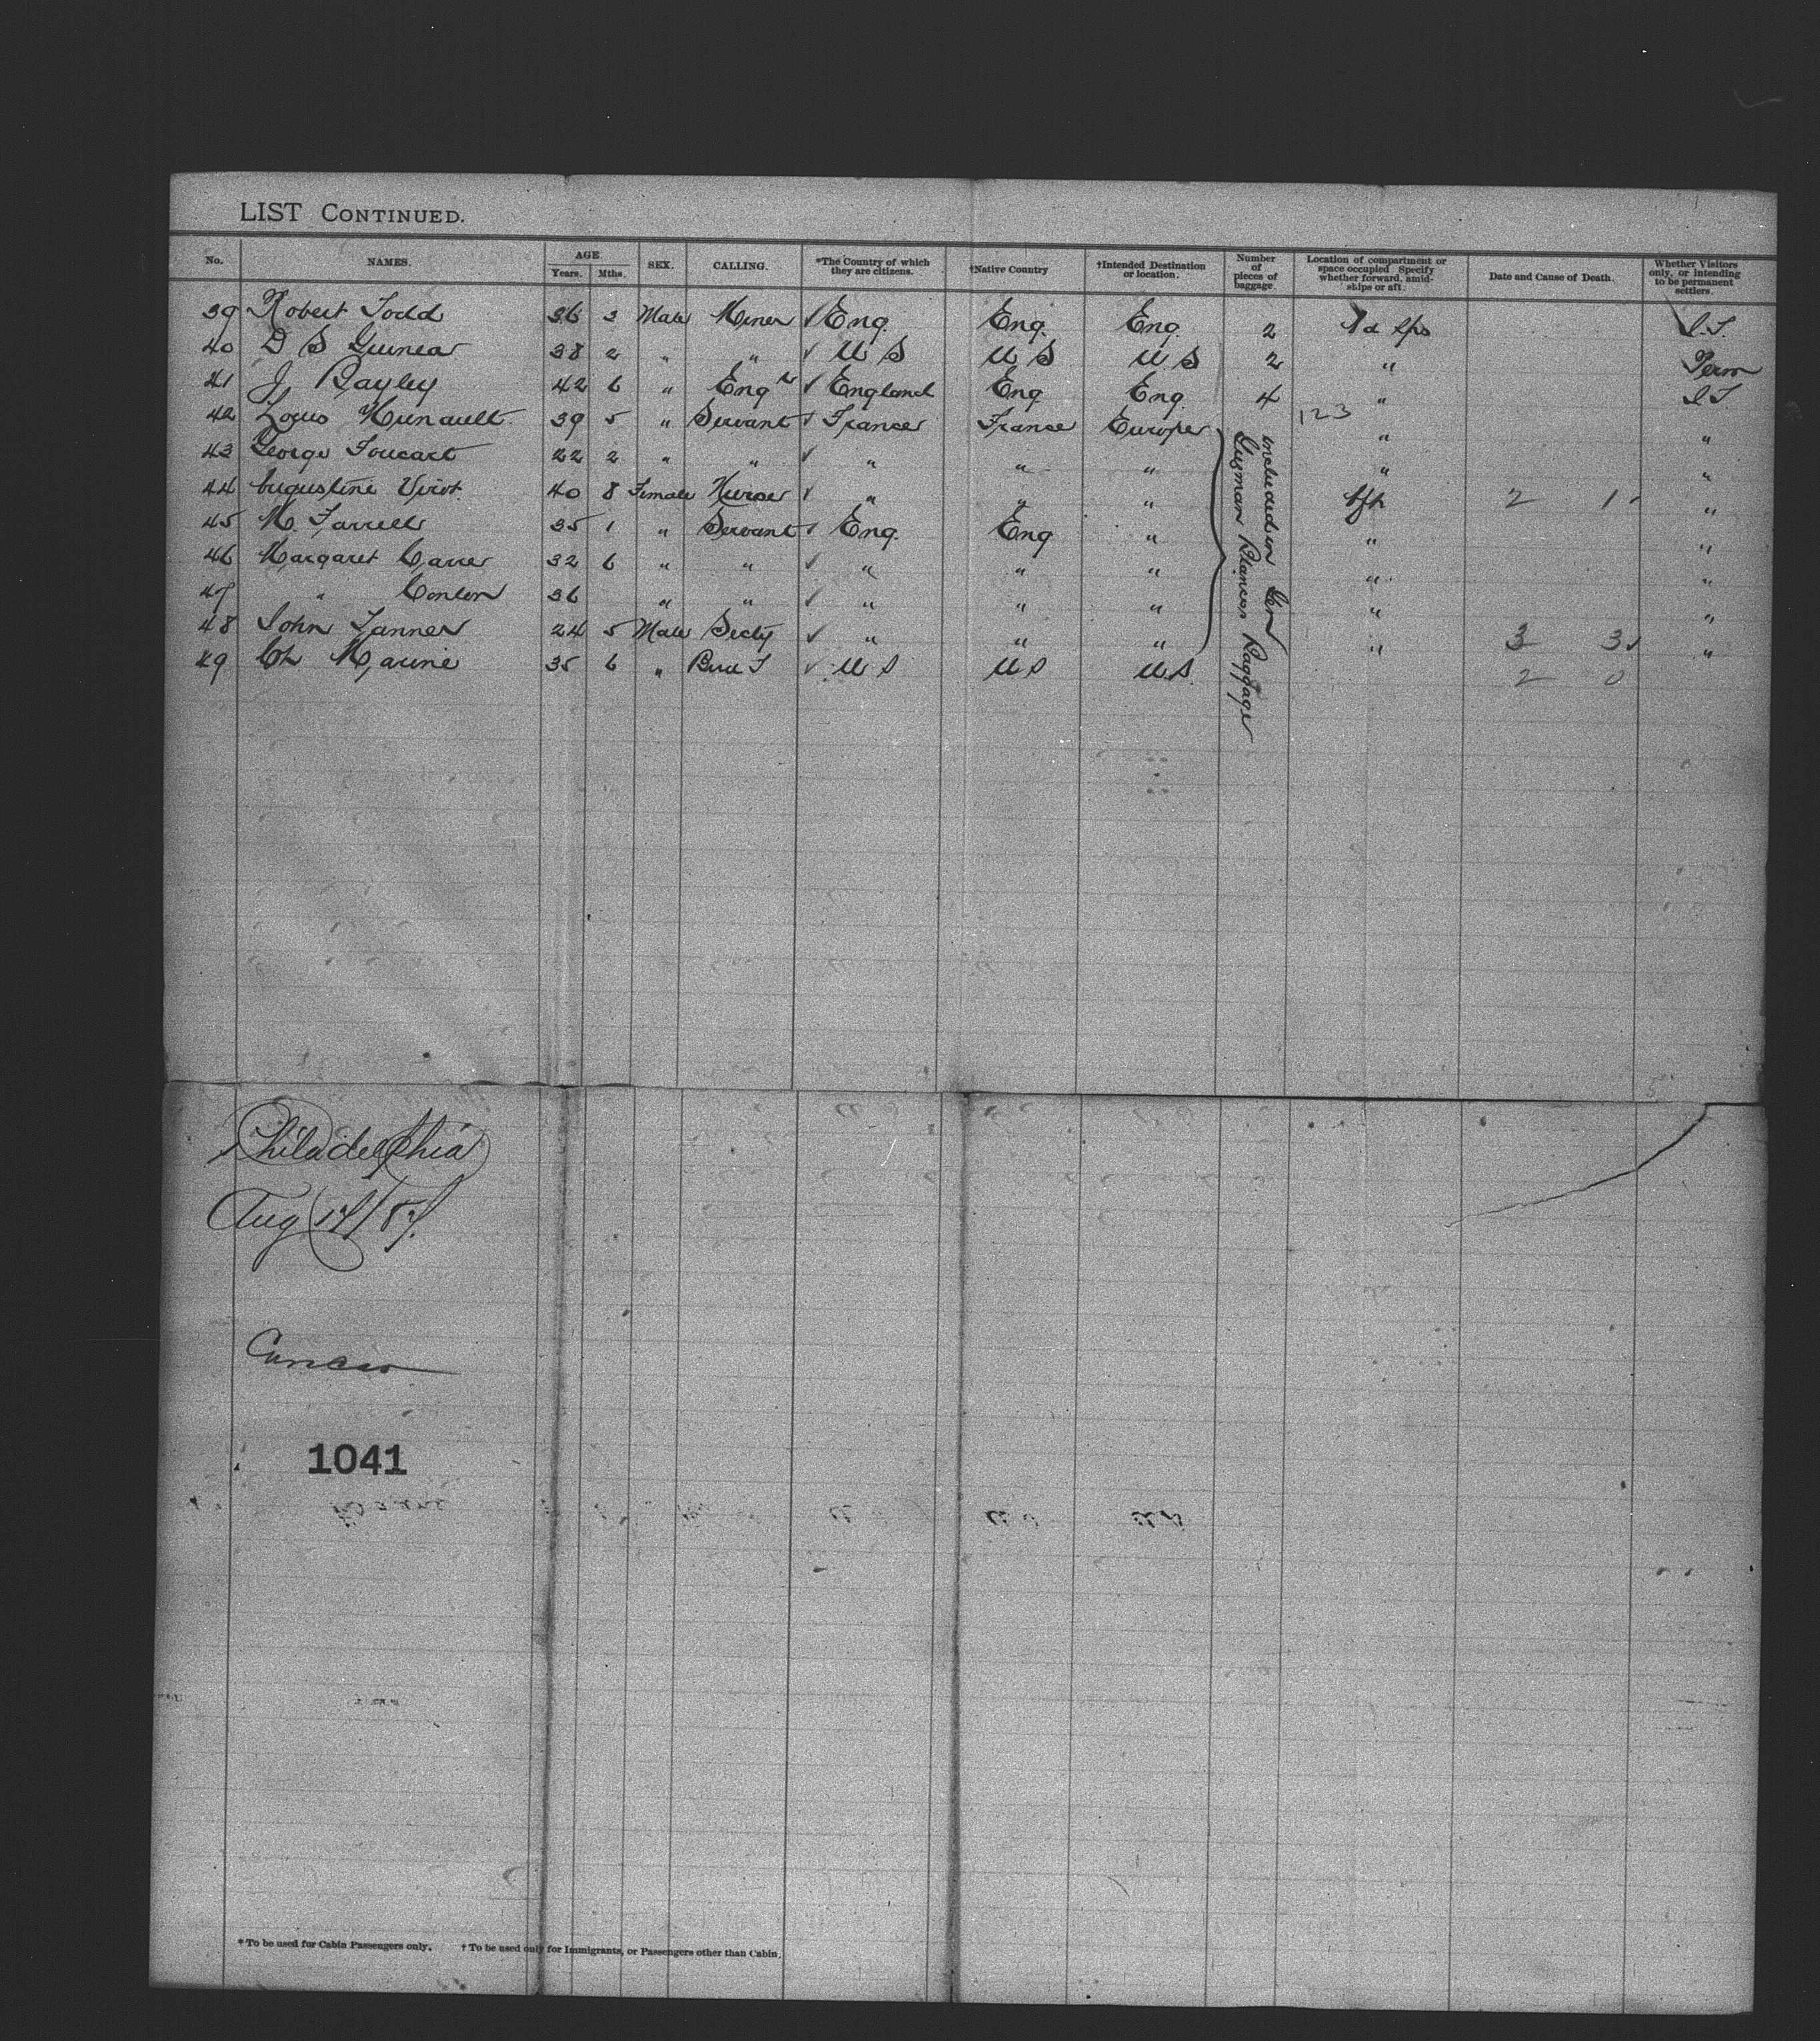 LIST CONTINUED.
No. NAMES. AGE. Years. Mths. SEX. CALLING. *The Country of which they are citizens. †Native Country †Intended Destination or location. Number of pieces of baggage. Location of compartment or space occupied Specify whether forward, amidships or aft. Date and Cause of Death. Whether Visitors only, or intending to be permanent settlers.
39 Robert Todd 36 3 Male Miner ✓ Eng. Eng. Eng. 2
40 D S Guinea 38 2 " " ✓ U S U S U S 2 "
41 J. Bayley 42 6 " Engr ✓ England Eng Eng 4 "
42 Louis Hunault 39 5 " Servant ✓ France France Europe 123 " "
43 George Foucart 22 2 " " ✓ " " " " "
44 Augustine Virot 40 8 Female Nurse ✓ " " " Aft 2 1 "
45 M. Farrell 35 1 " Servant ✓ Eng. Eng " " "
46 Margaret Carre 32 6 " " ✓ " " " " "
47 " Conlon 36 " " ✓ " " " " "
48 John Tanner 24 5 Male Secty ✓ " " " " 3 3 "
49 Ch Marine 35 6 " ✓ U S U S U.S. 2 0
included in Genl Guzman Blancos Baggage
Philadelphia
Aug 17/87.
Curacao
1041
* To be used for Cabin Passengers only. † To be used only for Immigrants, or Passengers other than Cabin.